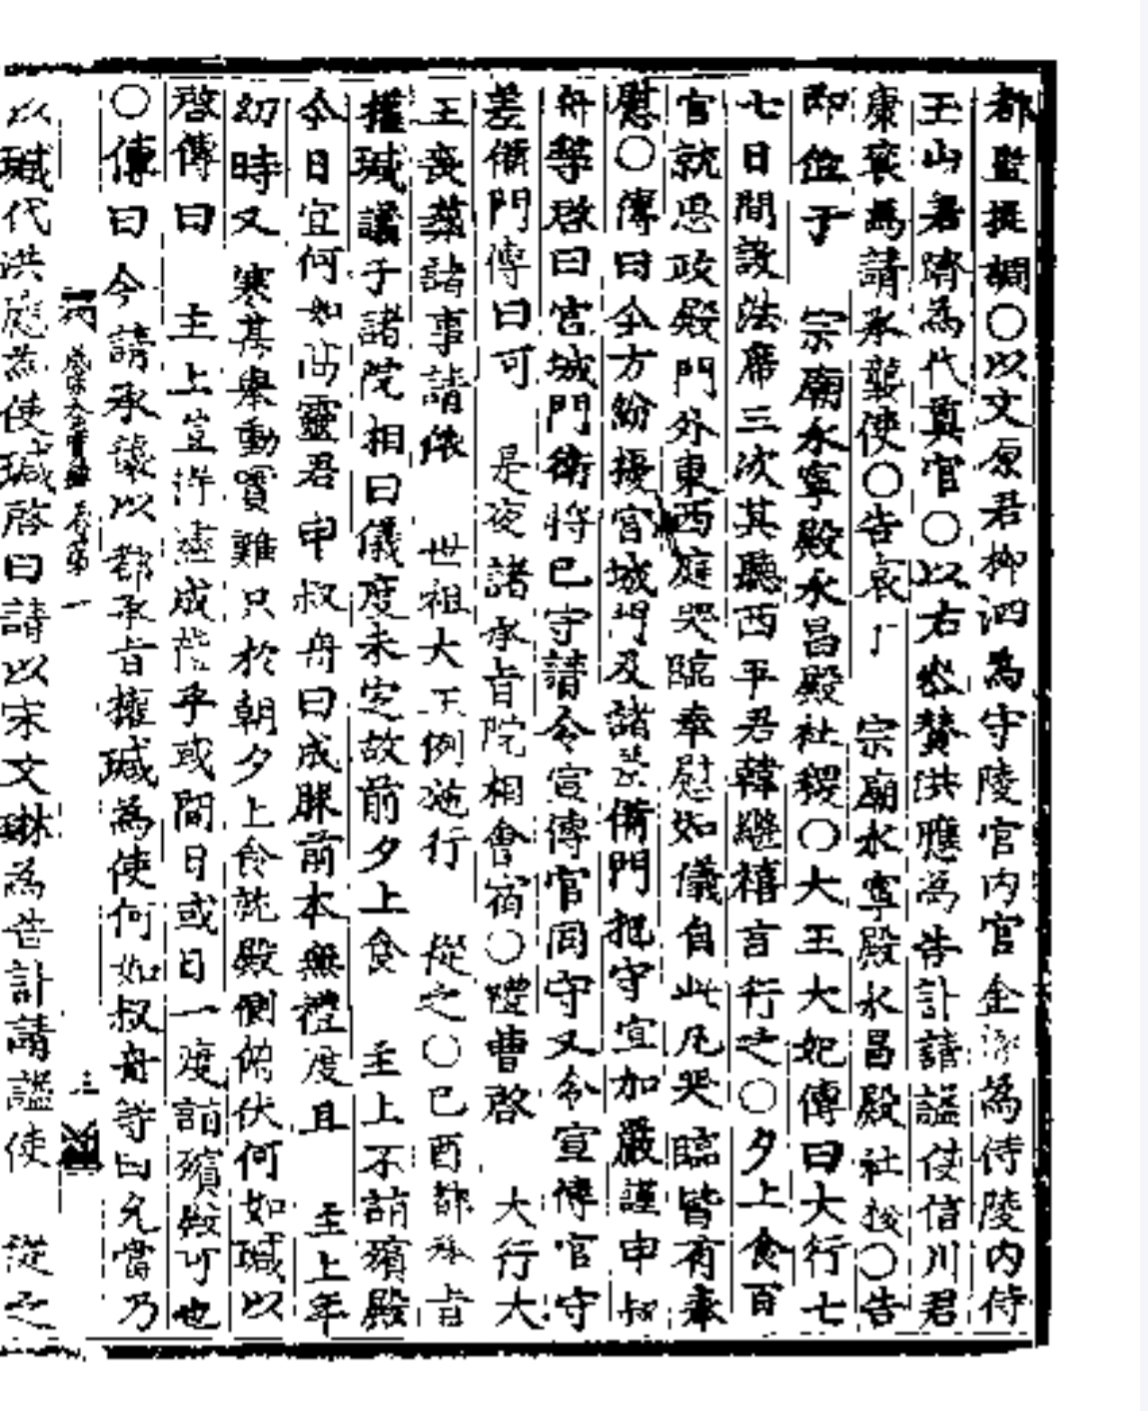 都監提調○以文原君柳泗爲守陵官内官金㴐爲侍陵内侍
玉山君躋爲代奠官○以右參贊洪應爲告訃請諡使信川君
康袞爲請承襲使○告哀于 宗廟永寧殿永昌殿社稷○告
即位于 宗廟永寧殿永昌殿社稷○大王大妃傳曰大行七
七日間設法席三次其聽西平君韓繼禧言行之○夕上食百
官就思政殿門外東西庭哭臨奉慰如儀自此凡哭臨皆有奉
慰○傳曰今方紛擾宮城門及諸差備門把守宜加嚴謹申叔
舟等啓曰宮城門衛將已守請令宣傳官同守又令宣傳官守
差備門傳曰可 是夜諸承旨院相會宿○禮曹啓 大行大
王喪葬諸事請依 世祖大王例施行 從之○己酉都承旨
權瑊議于諸院相曰儀度未定故前夕上食 主上不詣殯殿
今日宜何如高靈君申叔舟曰成服前本無禮度且 主上年
幼時又寒甚舉動實難只於朝夕上食詣殿側俯伏何如瑊以
啓傳曰 主上豈待遠成禮乎或間日或日一度詣殯殿可也
○傳曰今請承襲以都承旨權瑊爲使何如叔舟等曰允當乃
睿宗大王實錄卷第一
以瑊代洪應爲使瑊啓曰請以宋文琳爲告訃請諡使 從之